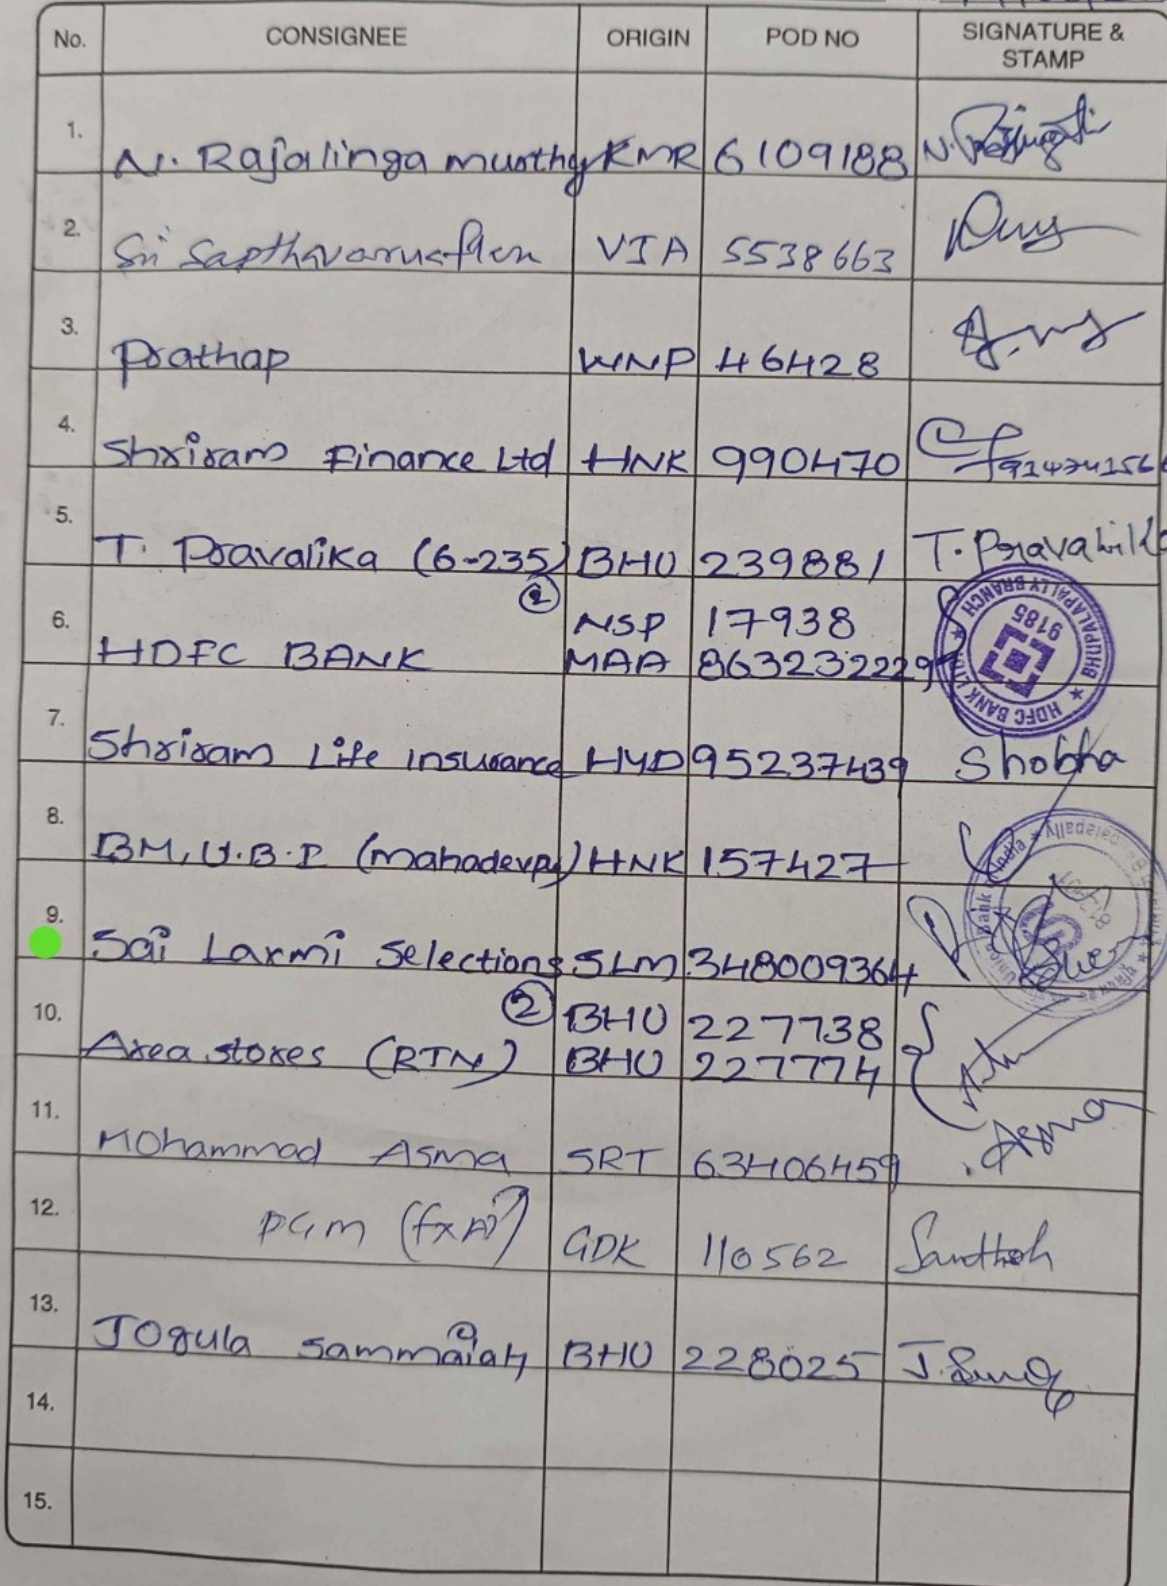 No. CONSIGNEE ORIGIN POD NO SIGNATURE & STAMP
1. N. Rajalinga murthy KMR 6109188
2. Sri Sapthavarna VJA 5538663
3. Prathap WNP 46428
4. Shriram Finance Ltd HNK 990470
5. T. Pravalika (6-235) BHU 239881 T. Pravalika
6. HDFC BANK ② NSP 17938
MAA 8632322229
HDFC BANK BHUPALAPALLY BRANCH 9185
7. Shriram Life insurance HYD 95237439 Shobha
8. BM, U.B.I (mahadevpu) HNK 157427
9. Sai Laxmi Selections SLM 348009364
10. Area stores (RTN) ② BHU 227738
BHU 227774
11. Mohammad Asma SRT 63406459 Asma
12. GDK 110562 Santhosh
13. Jogula sammaiah BHU 228025
14.
15.